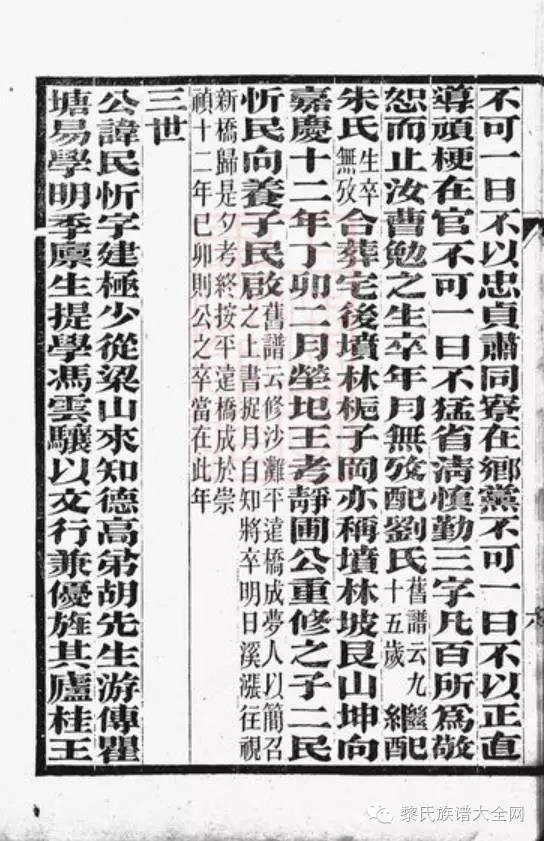 不可一日不以忠貞肅同寮在鄉黨不可一日不以正直
導頑梗在官不可一日不猛省淸慎勤三字凡百所爲敬
恕而止汝曹勉之生卒年月無攷配劉氏舊譜云九十五歲繼配
朱氏生卒無攷合葬宅後墳林梔子岡亦稱墳林坡艮山坤向
嘉慶十二年丁卯二月塋圮王考靜圃公重修之子二民
忻民向養子民啟舊譜云修沙灘平逹橋成夢人以簡召之上書捉月自知將卒明日溪漲往視
新橋歸是夕考終按平逹橋成於崇禎十二年已卯則公之卒當在此年
三世
公諱民忻字建極少從梁山來知德高弟胡先生游傳瞿
塘易學明季廩生提學馮雲驤以文行兼優旌其廬桂王
六
黎氏族谱大全网